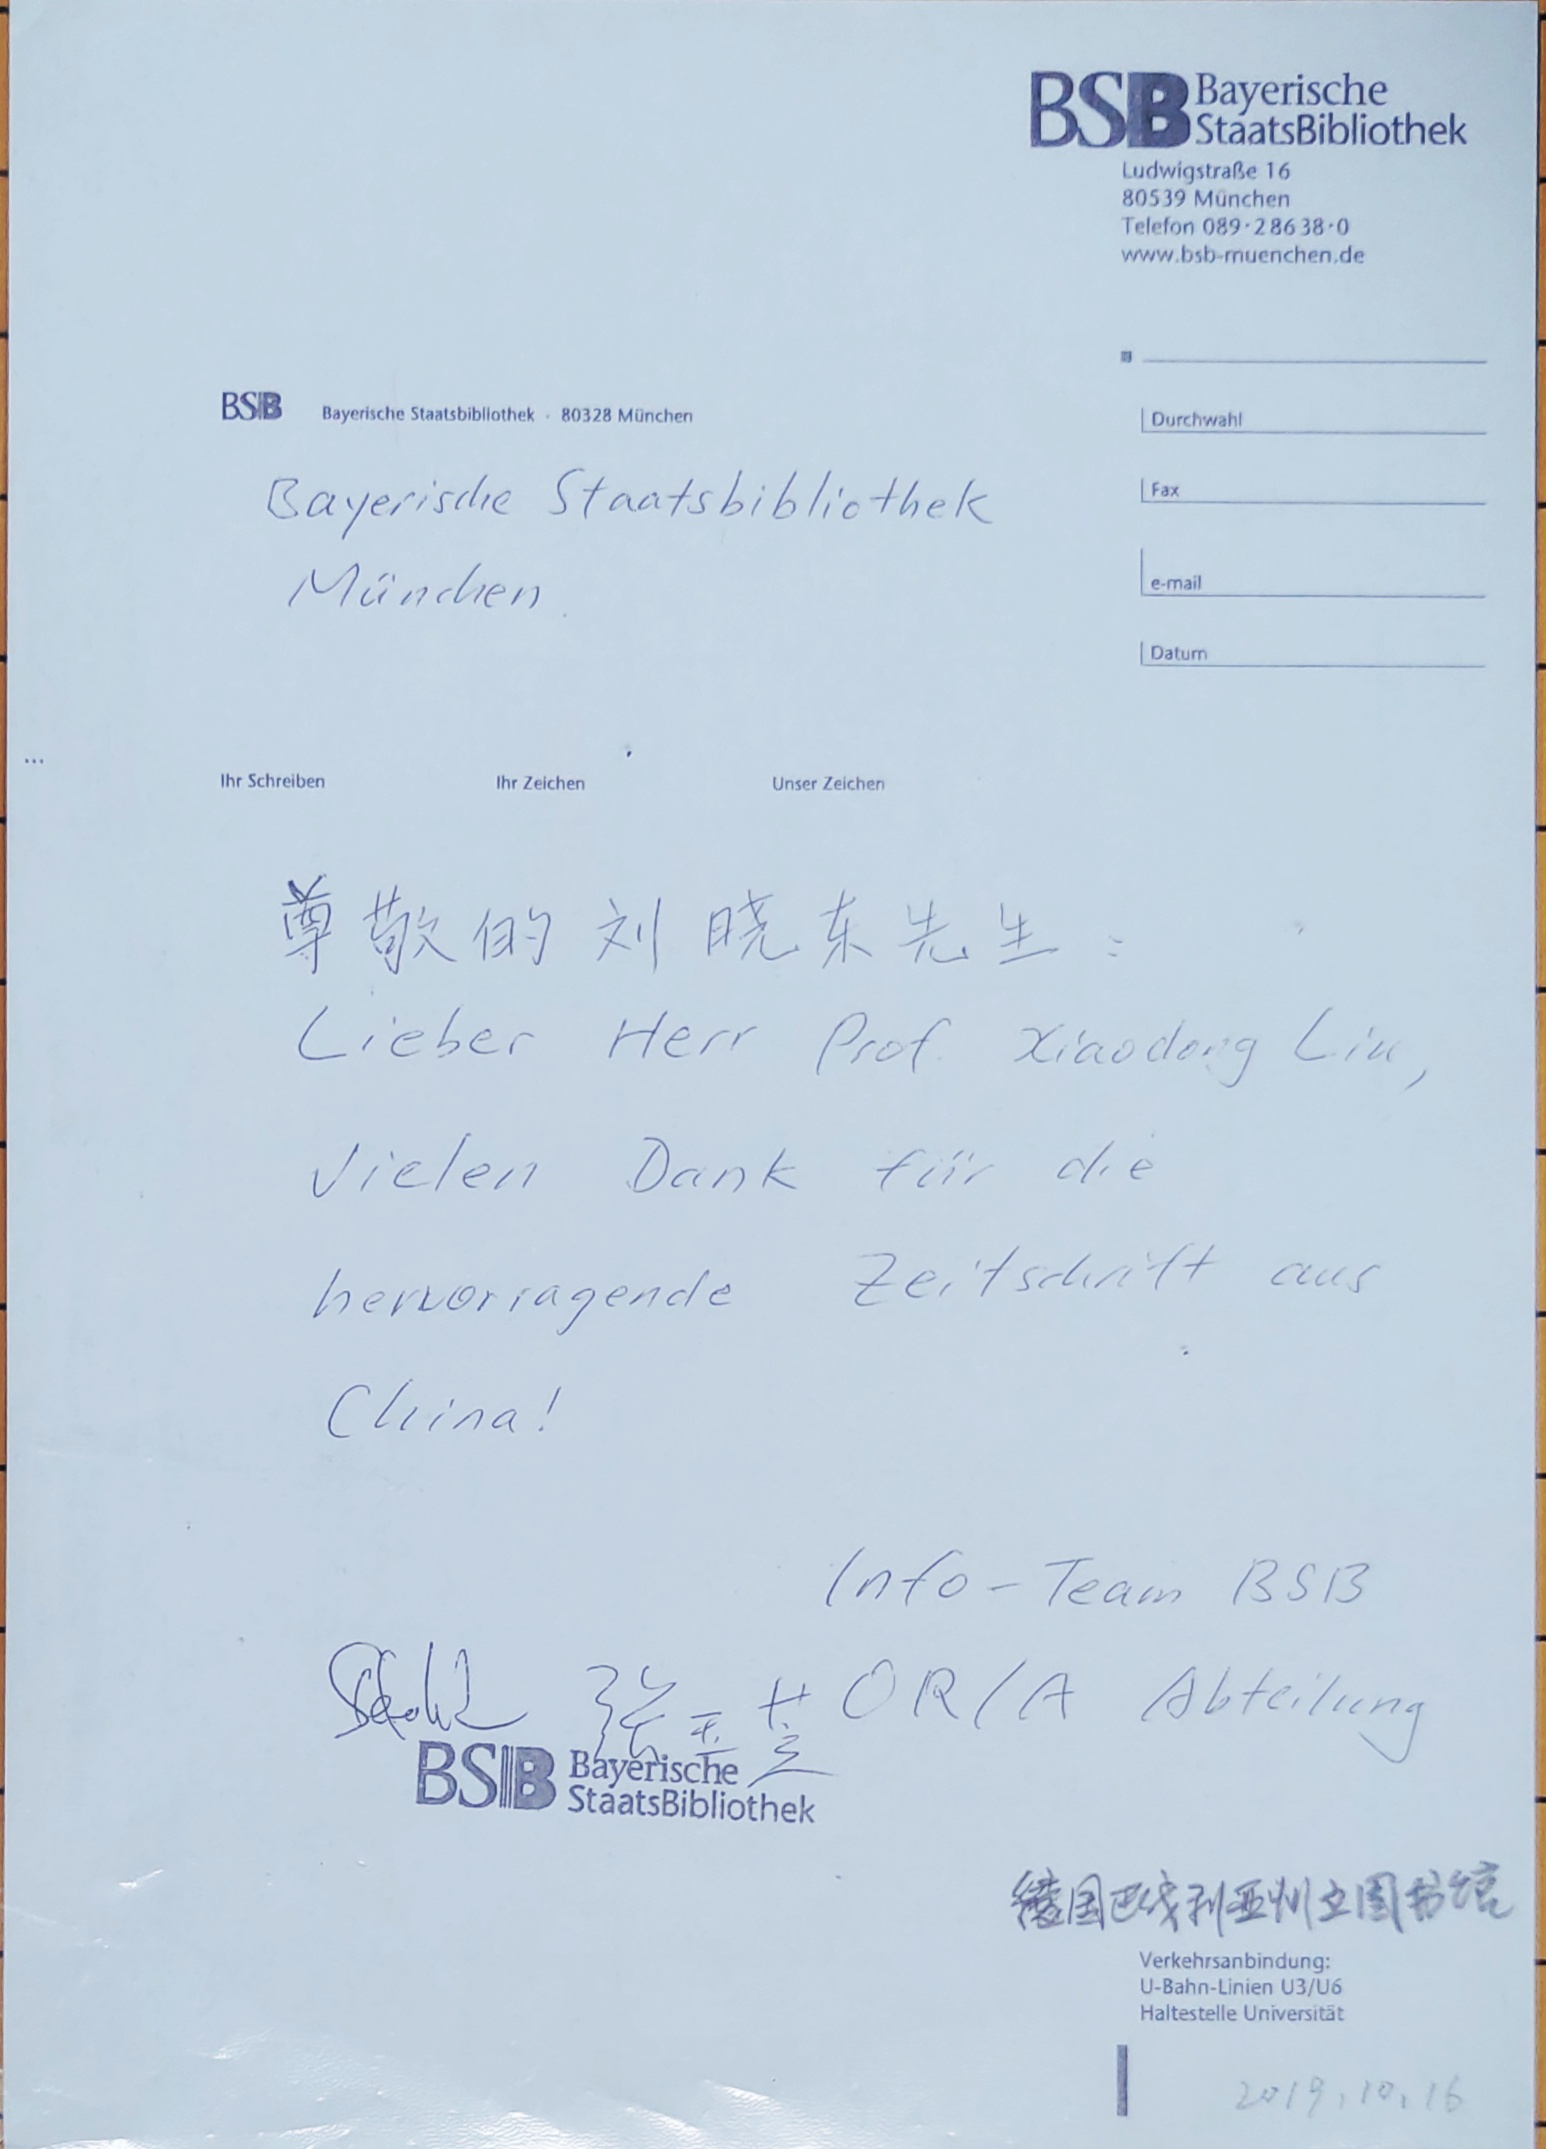 BSB Bayerische
StaatsBibliothek
Ludwigstraße 16
80539 München
Telefon 089·28638·0
www.bsb-muenchen.de
BSB Bayerische Staatsbibliothek · 80328 München
Durchwahl
Fax
e-mail
Datum
Bayerische Staatsbibliothek
München
Ihr Schreiben Ihr Zeichen Unser Zeichen
尊敬的刘晓东先生:
Lieber Herr Prof. Xiaodong Liu,
Vielen Dank für die
hervorragende Zeitschrift aus
China!
Info-Team BSB
OR/A Abteilung
BSB Bayerische
StaatsBibliothek
德国巴伐利亚州立图书馆
Verkehrsanbindung:
U-Bahn-Linien U3/U6
Haltestelle Universität
2019.10.16